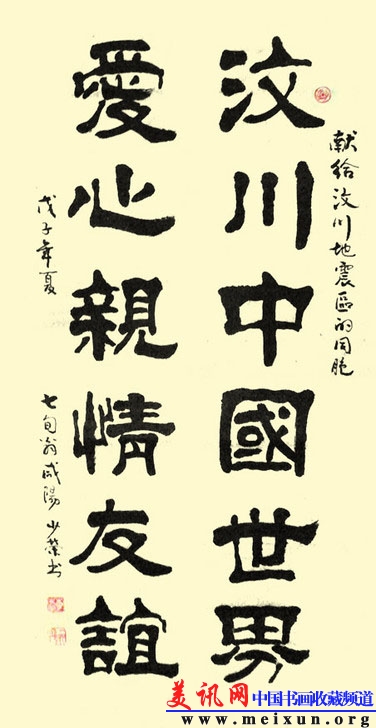 献给汶川地震區的同胞
汶川中國世界
愛心親情友誼
戊子年夏
七旬翁咸陽少荣书
美讯网 中国书画收藏频道
www.meixun.org